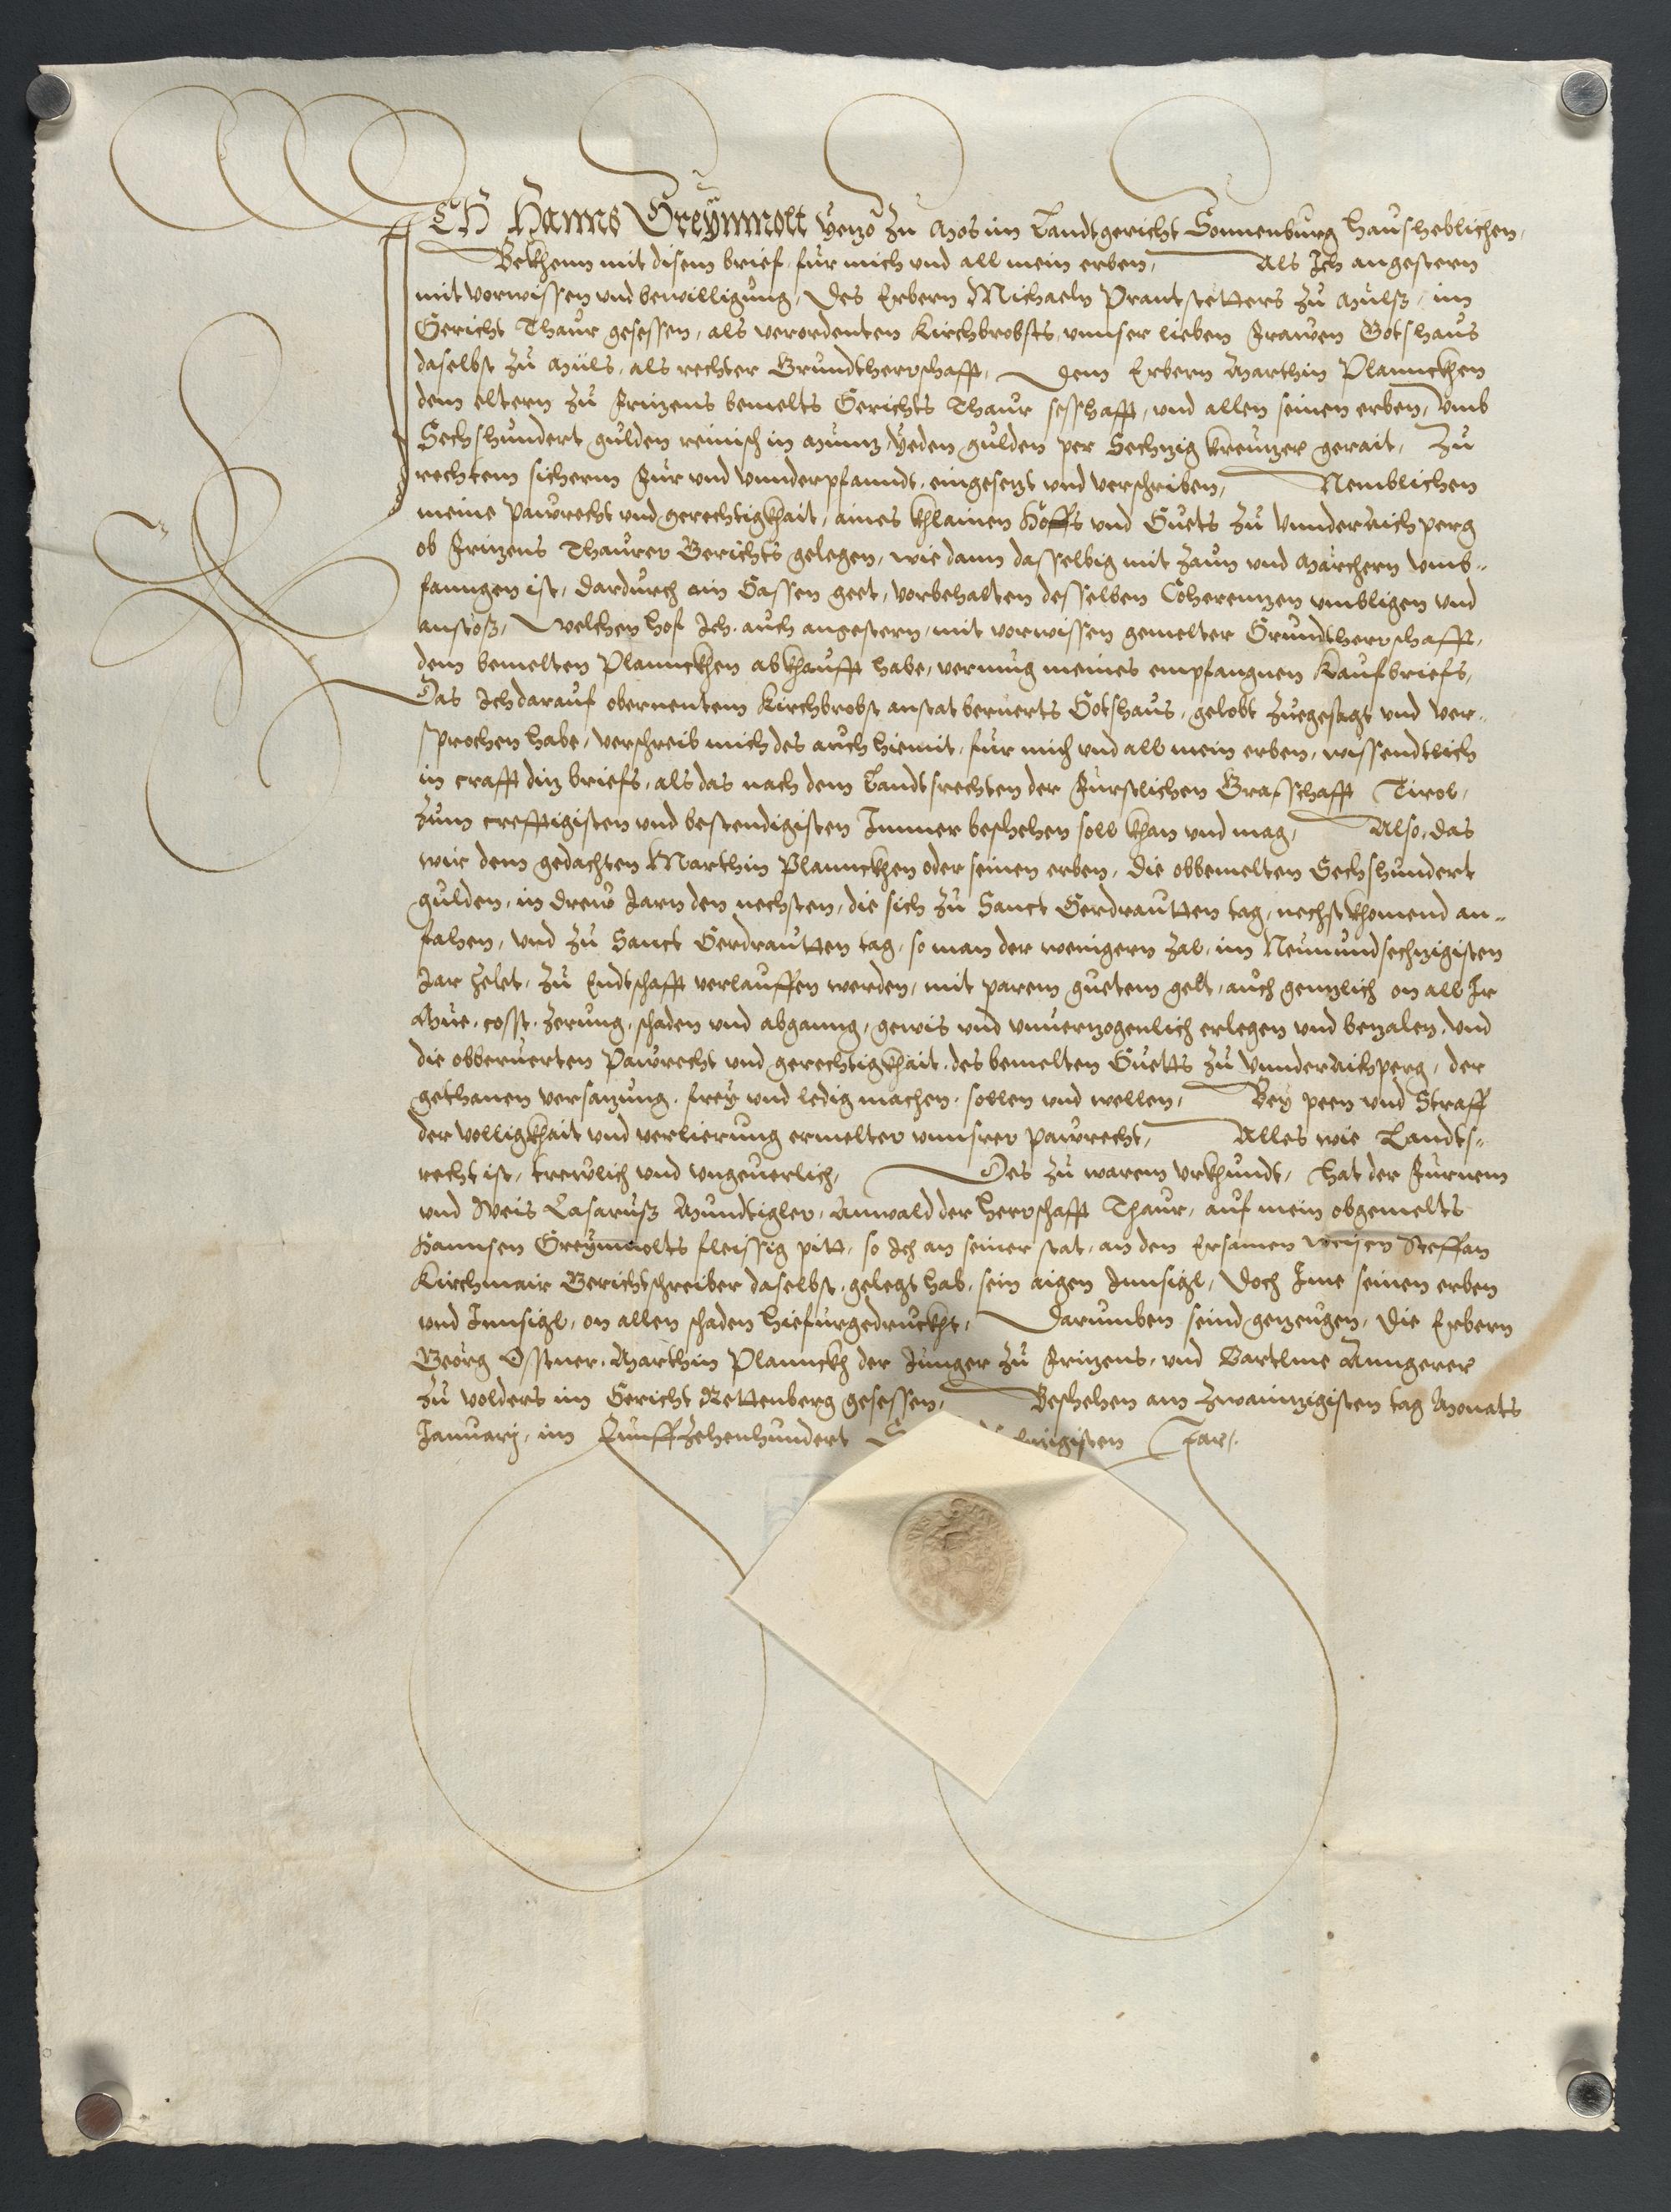 ICH Hanns Greÿmmolt yezo zu Mos im Landtgericht Sonnenburg hausheblichen,
Bekhenn mit disem brief, für mich und all mein erben, Als Ich angestern
mit vorwissen und bewilligung, des Erbern Michaeln Prantstetters zu Mulß, im
Gericht Thaur gesessen, als verordenten Kirchbrobsts, unnser lieben Frawen Gotshaus
daselbst zu Müls, als rechter Grundtherrschafft, dem Erbern Marthin Plannckhen
dem eltern zu Fritzens bemelts Gerichts Thaur sesshafft, und allen seinen erben, umb
Sechshundert gulden reinisch in Munz, yeden gulden per Sechzig kreutzer gerait, Zu
rechtem sicherm Für und unnderpfanndt, eingesetzt und verschriben, Nemblichen
meine pawrecht und gerechtigkhait, aines khlainen Hoffs und Guets zu Unnderaichperg
ob Fritzens Thaurer Gerichts gelegen, wie dann dasselbig mit Zaun und Märchern umb-
fanngen ist, dardurch ain Gassen geet, vorbehalten desselben Coherentzen umbligen und
anstöß, welchen hof Ich auch angestern, mit vorwissen gemelter Grundtherrschafft,
dem bemelten Plannckhen abkhaufft habe, vermug meines empfangnen Kaufbriefs,
Das Ich darauf obernentem Kirchbrobst anstat beruerts Gotshaus, gelobt zuegesagt und ver-
sprochen habe, verschreib mich des auch hiemit, für mich und all mein erben, wissendtlich
in crafft ditz briefs, als das nach dem Landtsrechten der Fürstlichen Grafschafft Tirol,
zum crefftigisten und bestendigisten Immer beshehen soll khan und mag, Also, das
wir dem gedachten Marthin Plannckhen oder seinen erben, die obbemelten Sechshundert
gulden, in drew Jarn den nechsten, die sich zu Sanct Gerdrautten tag, nechstkhomend an-
fahen, und zu Sanct Gerdrautten tag, so man der wenigern Zal, im Neunundsechzigisten
Jar zelet, zu Endtschafft verlauffen werden, mit parem guetem gelt, auch genntzlich on all Ir
Mue, cosst, Zerung, schaden und abganng, gewis und unvertzogenlich erlegen und betzalen, und
die obberuerten Pawrecht und gerechtigkhait, des bemelten Guetts zu Unnderaichperg, der
gethanen versatzung, freÿ und ledig machen, sollen und wellen, Beÿ peen und Straff
der volligkhait und verlierung ermelter unnserer pawrecht, Alles wie Landts-
recht ist, trewlich und ungeuerlich, Des zu warem urkhundt, hat der Fürnem
und Weis Lasaruß Mundtigler, Anwald der herrschafft Thaur, auf mein obgemelts
Hannsen Greÿmmolts fleissig pitt, so Ich an seiner stat, an den Ersamen weisen Steffan
Kirchmair Gerichtschreiber daselbst, gelegt hab, sein aigen Innsigl, doch Ime seinen erben
und Innsigl, on allen schaden hiefürgedruckht, Darumben seind getzeugen, die Erbern
Georg Ostner, Marthin Plannckh der Junger zu Fritzens, und Bartlme Anngerer
zu Volders im Gericht Rettenberg gesessen, Beshehen am Zwaintzigisten tag Monats
Januarÿ, im Funffzehenhundert Jar.